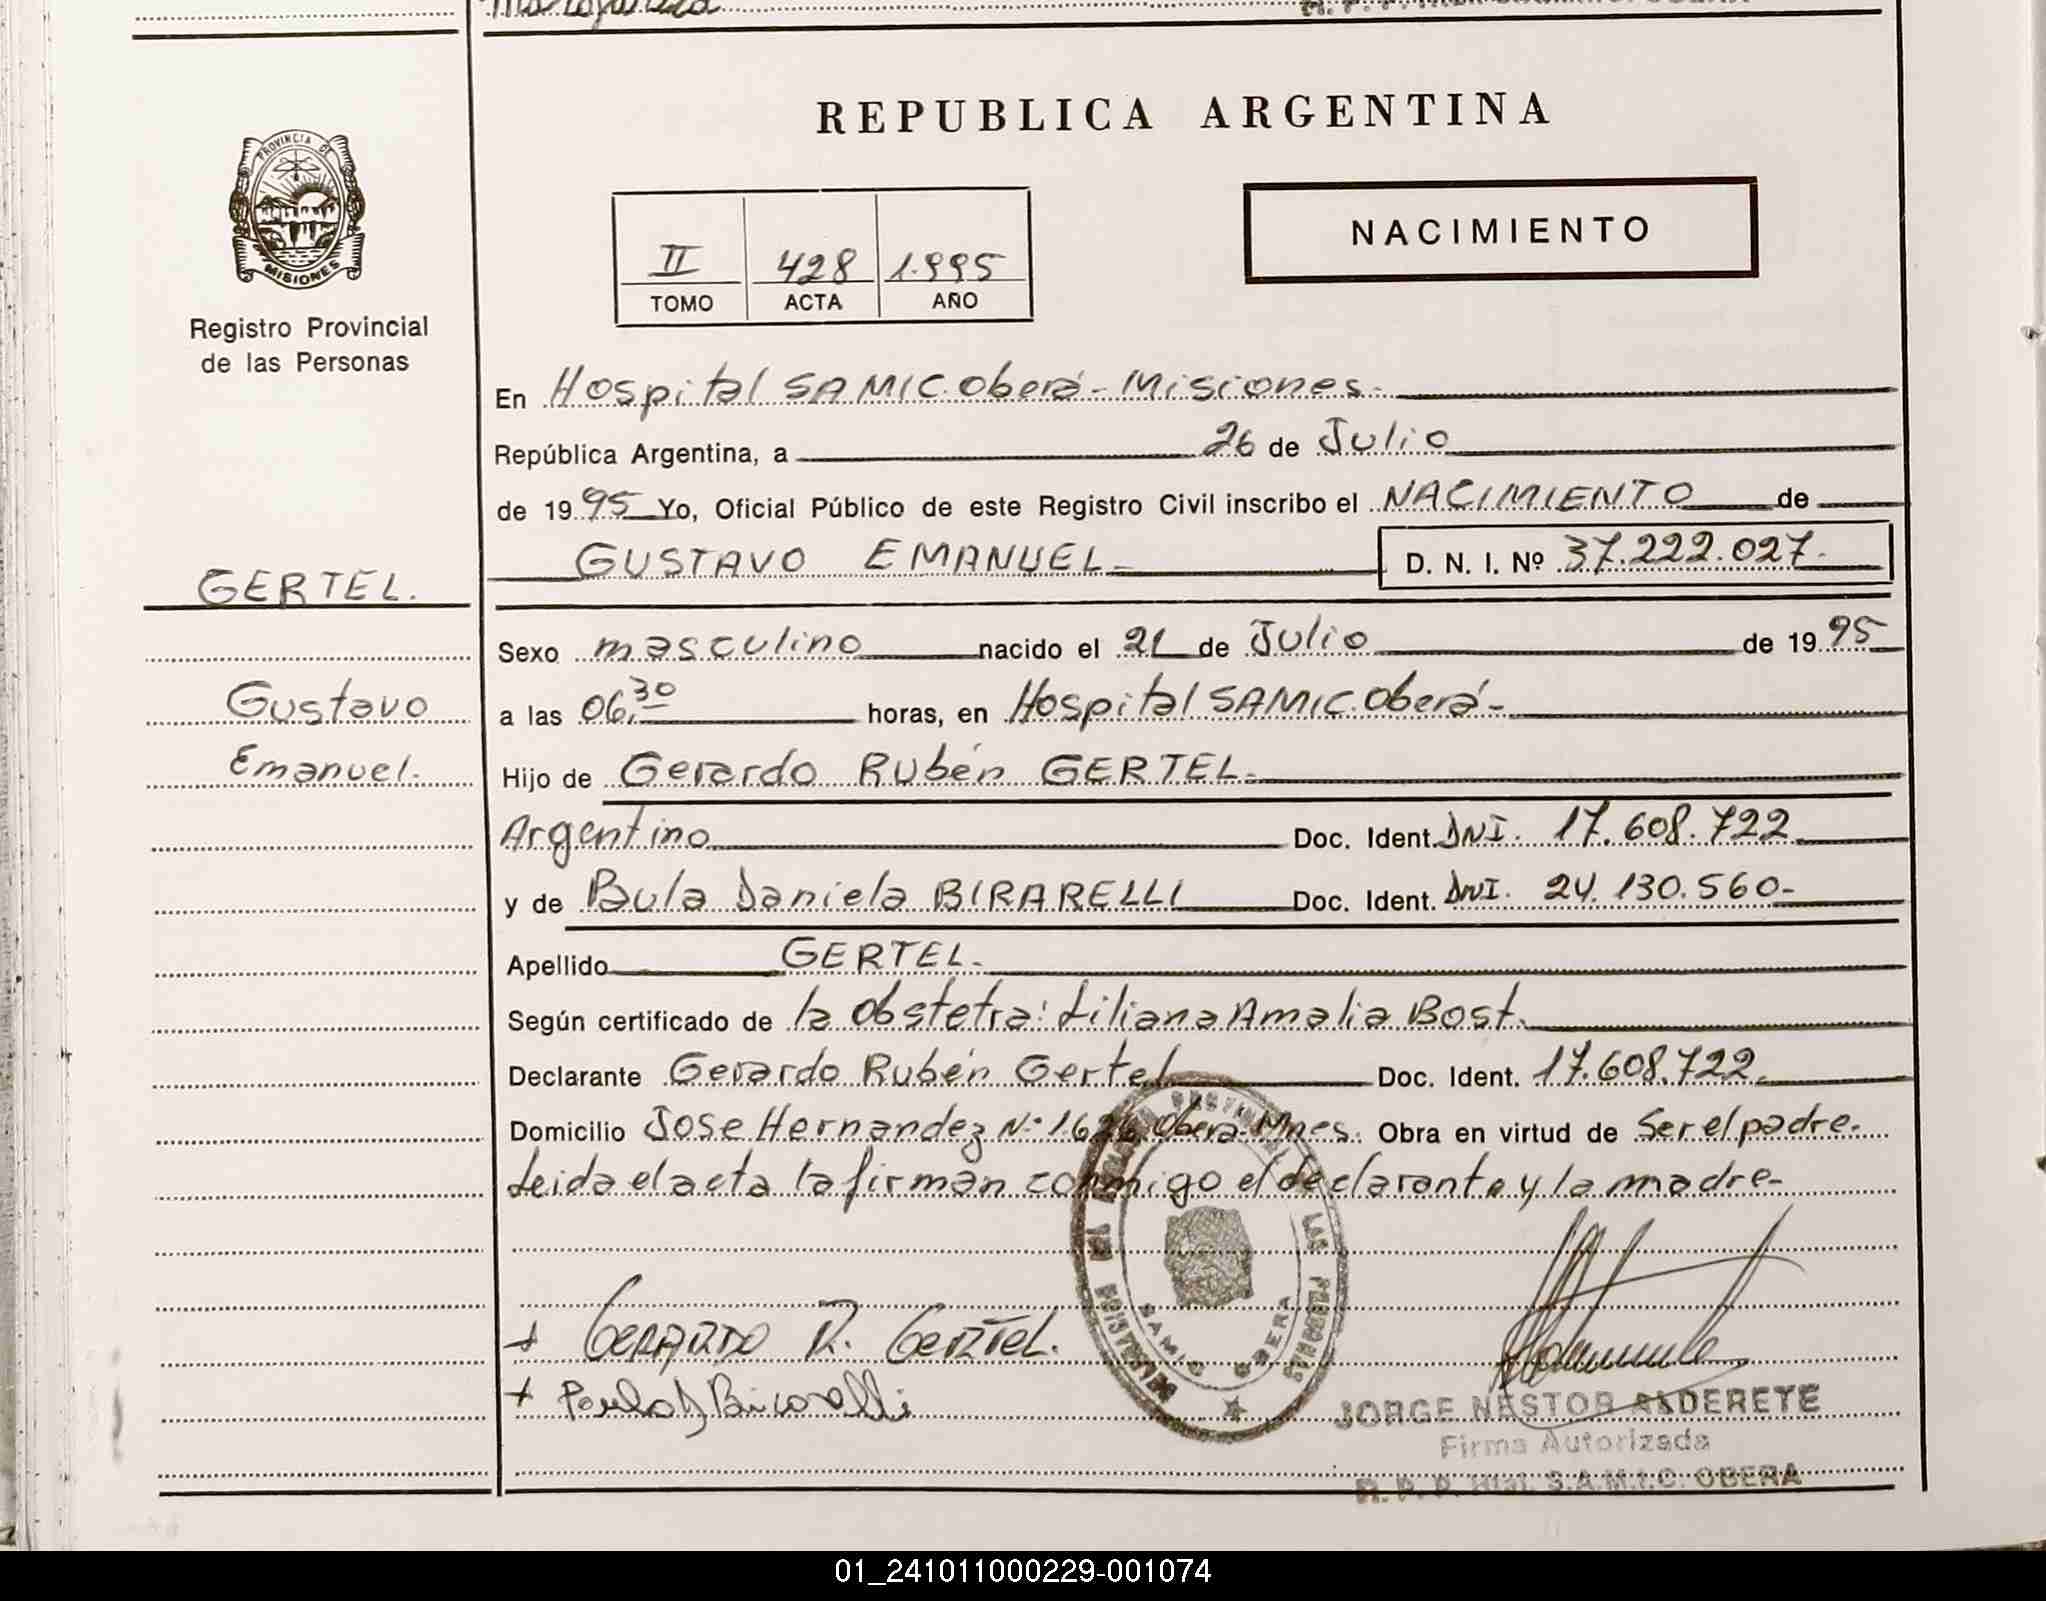 REPUBLICA ARGENTINA
PROVINCIA DE
MISIONES
Registro Provincial
de las Personas
NACIMIENTO
II 428 1.995
TOMO ACTA AÑO
En Hospital SAMIC. Oberá - Misiones.
República Argentina, a 26 de Julio
de 1995 Yo, Oficial Público de este Registro Civil inscribo el NACIMIENTO de
GUSTAVO EMANUEL - D. N. I. Nº 37.222.027.
GERTEL.
Gustavo
Emanuel.
Sexo masculino nacido el 21 de Julio de 1995
a las 06.30 horas, en Hospital SAMIC. Oberá -
Hijo de Gerardo Rubén GERTEL.
Argentino Doc. Ident. DNI. 17.608.722
y de Paula Daniela BIRARELLI Doc. Ident. DNI. 24.130.560-
Apellido GERTEL.
Según certificado de la Obstetra: Liliana Amalia Bost.
Declarante Gerardo Rubén Gertel Doc. Ident. 17.608.722.
Domicilio Jose Hernandez Nº 1.626 Obera - Mnes. Obra en virtud de Ser el padre.
Leida el acta la firman conmigo el declarante y la madre-
+ GERARDO R. GERTEL.
+ Paula D Birarelli
SAMIC OBERA
JORGE NESTOR ALDERETE
Firma Autorizada
R. P. P. Htal. S.A.M.I.C. OBERA
01_241011000229-001074